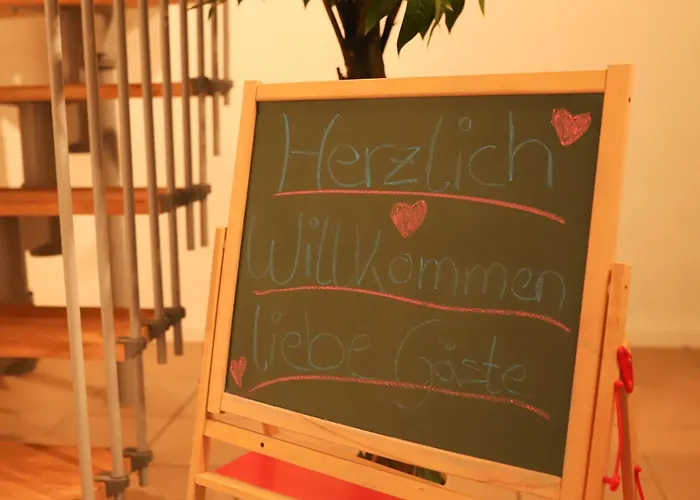 Herzlich
Willkommen
liebe Gäste